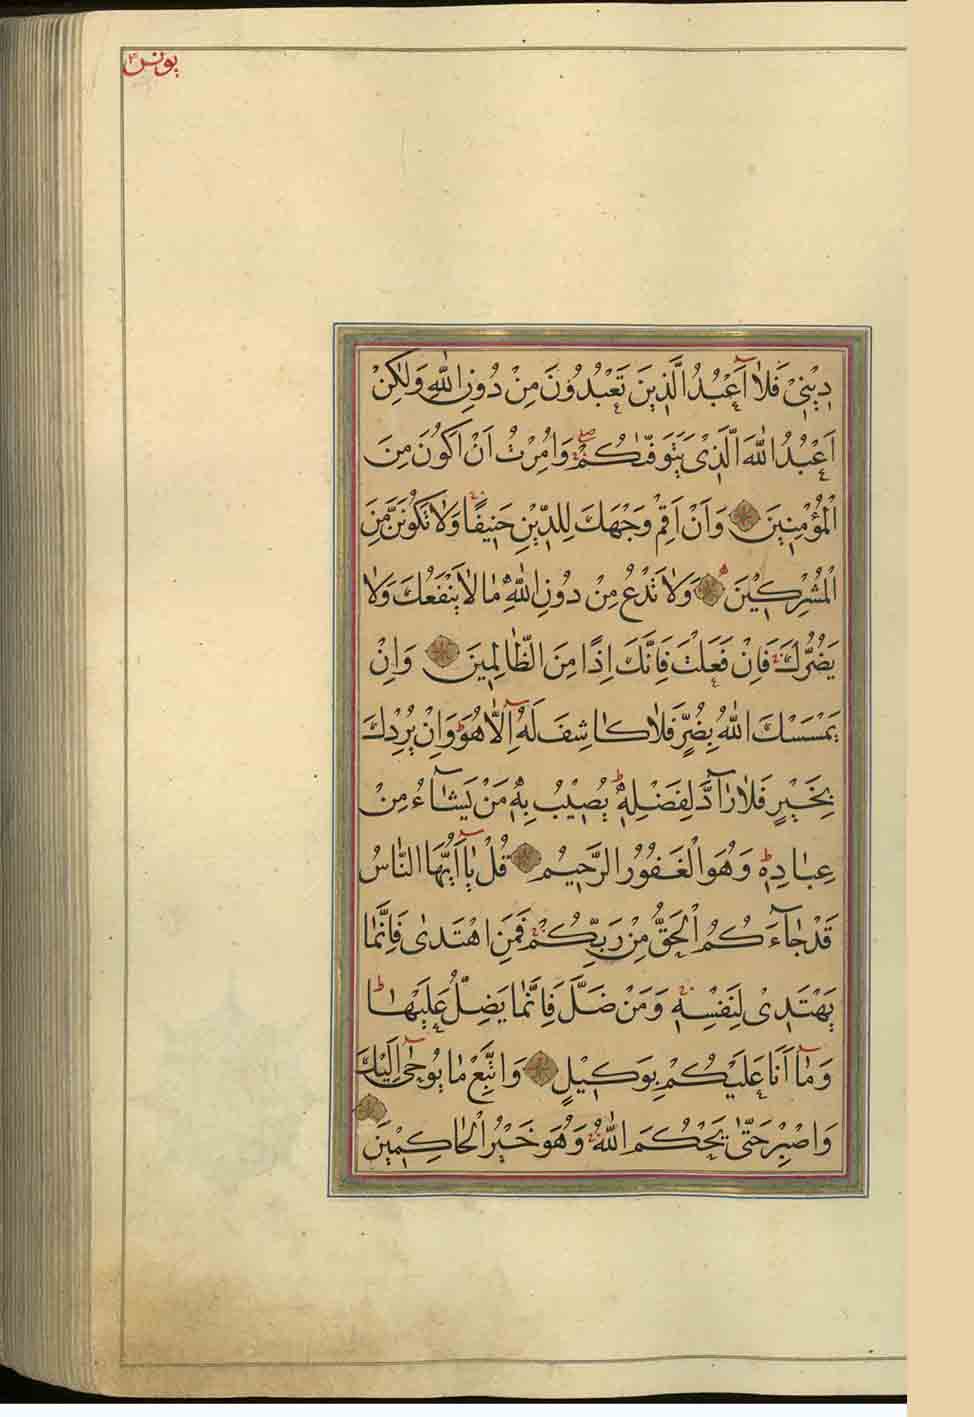 يونس
دِينِي فَلَا أَعْبُدُ الَّذِينَ تَعْبُدُونَ مِنْ دُونِ اللَّهِ وَلٰكِنْ
اَعْبُدُ اللَّهَ الَّذِي يَتَوَفّٰىكُمْ وَاُمِرْتُ اَنْ اَكُونَ مِنَ
الْمُؤْمِنِينَ وَاَنْ اَقِمْ وَجْهَكَ لِلدِّينِ حَنِيفًا وَلَا تَكُونَنَّ مِنَ
الْمُشْرِكِينَ وَلَا تَدْعُ مِنْ دُونِ اللَّهِ مَا لَا يَنْفَعُكَ وَلَا
يَضُرُّكَ فَاِنْ فَعَلْتَ فَاِنَّكَ اِذًا مِنَ الظَّالِمِينَ وَاِنْ
يَمْسَسْكَ اللَّهُ بِضُرٍّ فَلَا كَاشِفَ لَهُ اِلَّا هُوَ وَاِنْ يُرِدْكَ
بِخَيْرٍ فَلَا رَآدَّ لِفَضْلِهِ يُصِيبُ بِهِ مَنْ يَشَآءُ مِنْ
عِبَادِهِ وَهُوَ الْغَفُورُ الرَّحِيمُ قُلْ يَا اَيُّهَا النَّاسُ
قَدْ جَآءَكُمُ الْحَقُّ مِنْ رَبِّكُمْ فَمَنِ اهْتَدٰى فَاِنَّمَا
يَهْتَدِي لِنَفْسِهِ وَمَنْ ضَلَّ فَاِنَّمَا يَضِلُّ عَلَيْهَا
وَمَآ اَنَا عَلَيْكُمْ بِوَكِيلٍ وَاتَّبِعْ مَا يُوحٰى اِلَيْكَ
وَاصْبِرْ حَتّٰى يَحْكُمَ اللَّهُ وَهُوَ خَيْرُ الْحَاكِمِينَ